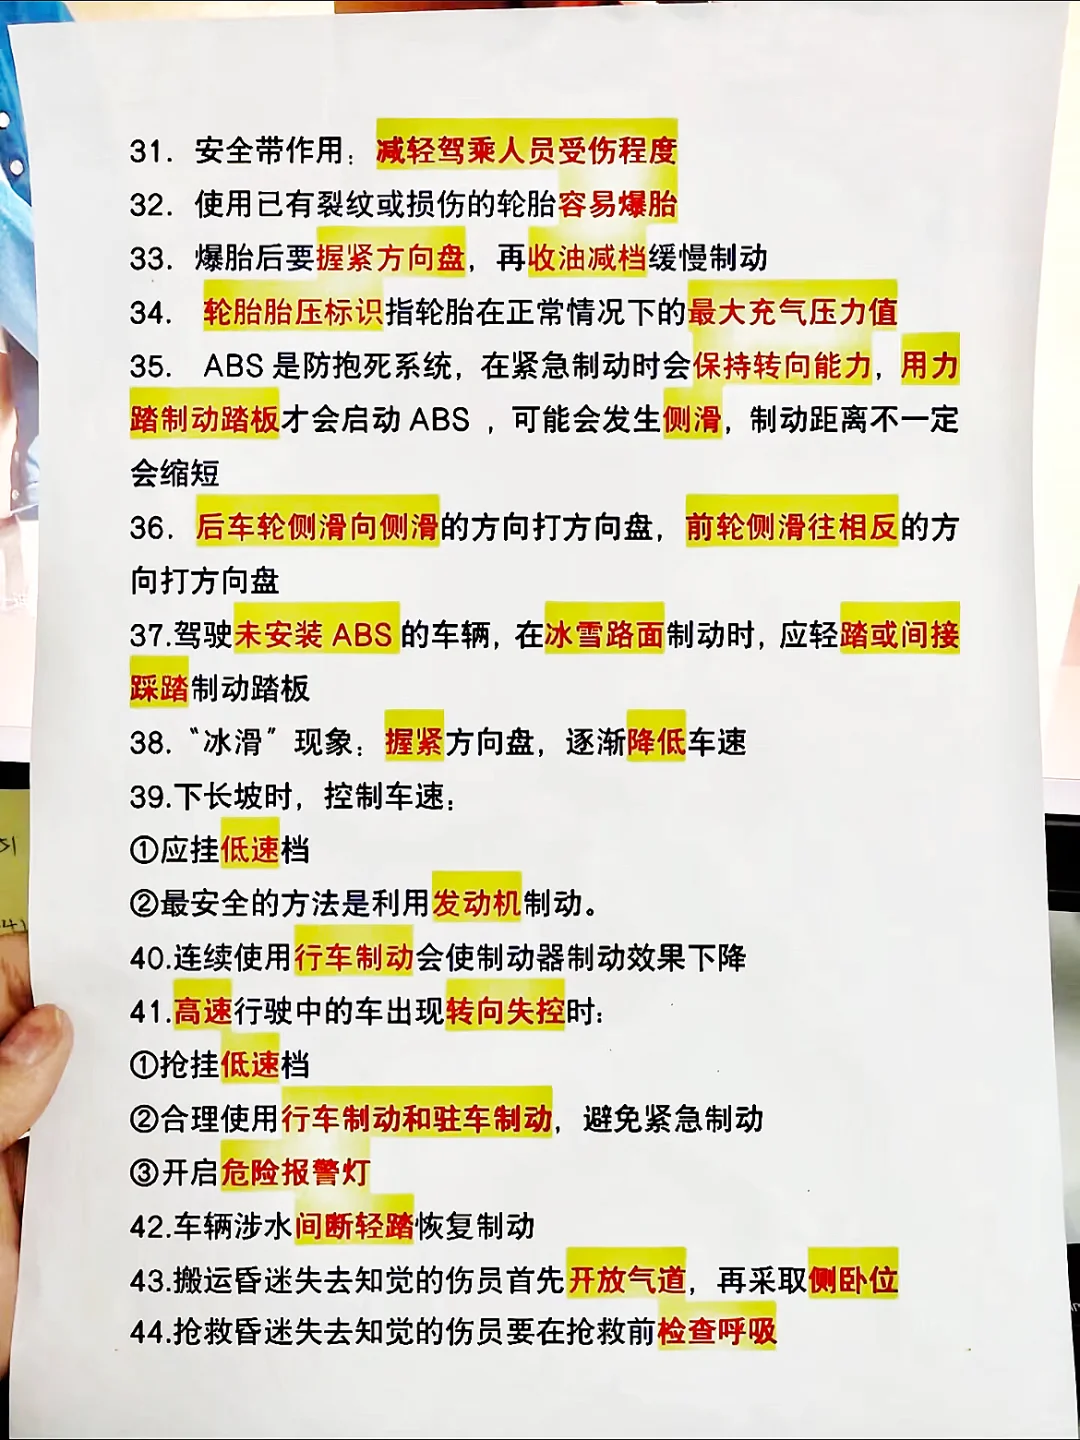 31. 安全带作用：减轻驾乘人员受伤程度
32. 使用已有裂纹或损伤的轮胎容易爆胎
33. 爆胎后要握紧方向盘，再收油减档缓慢制动
34. 轮胎胎压标识指轮胎在正常情况下的最大充气压力值
35. ABS是防抱死系统，在紧急制动时会保持转向能力，用力
踏制动踏板才会启动 ABS ，可能会发生侧滑，制动距离不一定
会缩短
36. 后车轮侧滑向侧滑的方向打方向盘，前轮侧滑往相反的方
向打方向盘
37.驾驶未安装 ABS 的车辆，在冰雪路面制动时，应轻踏或间接
踩踏制动踏板
38.“冰滑”现象：握紧方向盘，逐渐降低车速
39.下长坡时，控制车速：
①应挂低速档
②最安全的方法是利用发动机制动。
40.连续使用行车制动会使制动器制动效果下降
41.高速行驶中的车出现转向失控时：
①抢挂低速档
②合理使用行车制动和驻车制动，避免紧急制动
③开启危险报警灯
42.车辆涉水间断轻踏恢复制动
43.搬运昏迷失去知觉的伤员首先开放气道，再采取侧卧位
44.抢救昏迷失去知觉的伤员要在抢救前检查呼吸